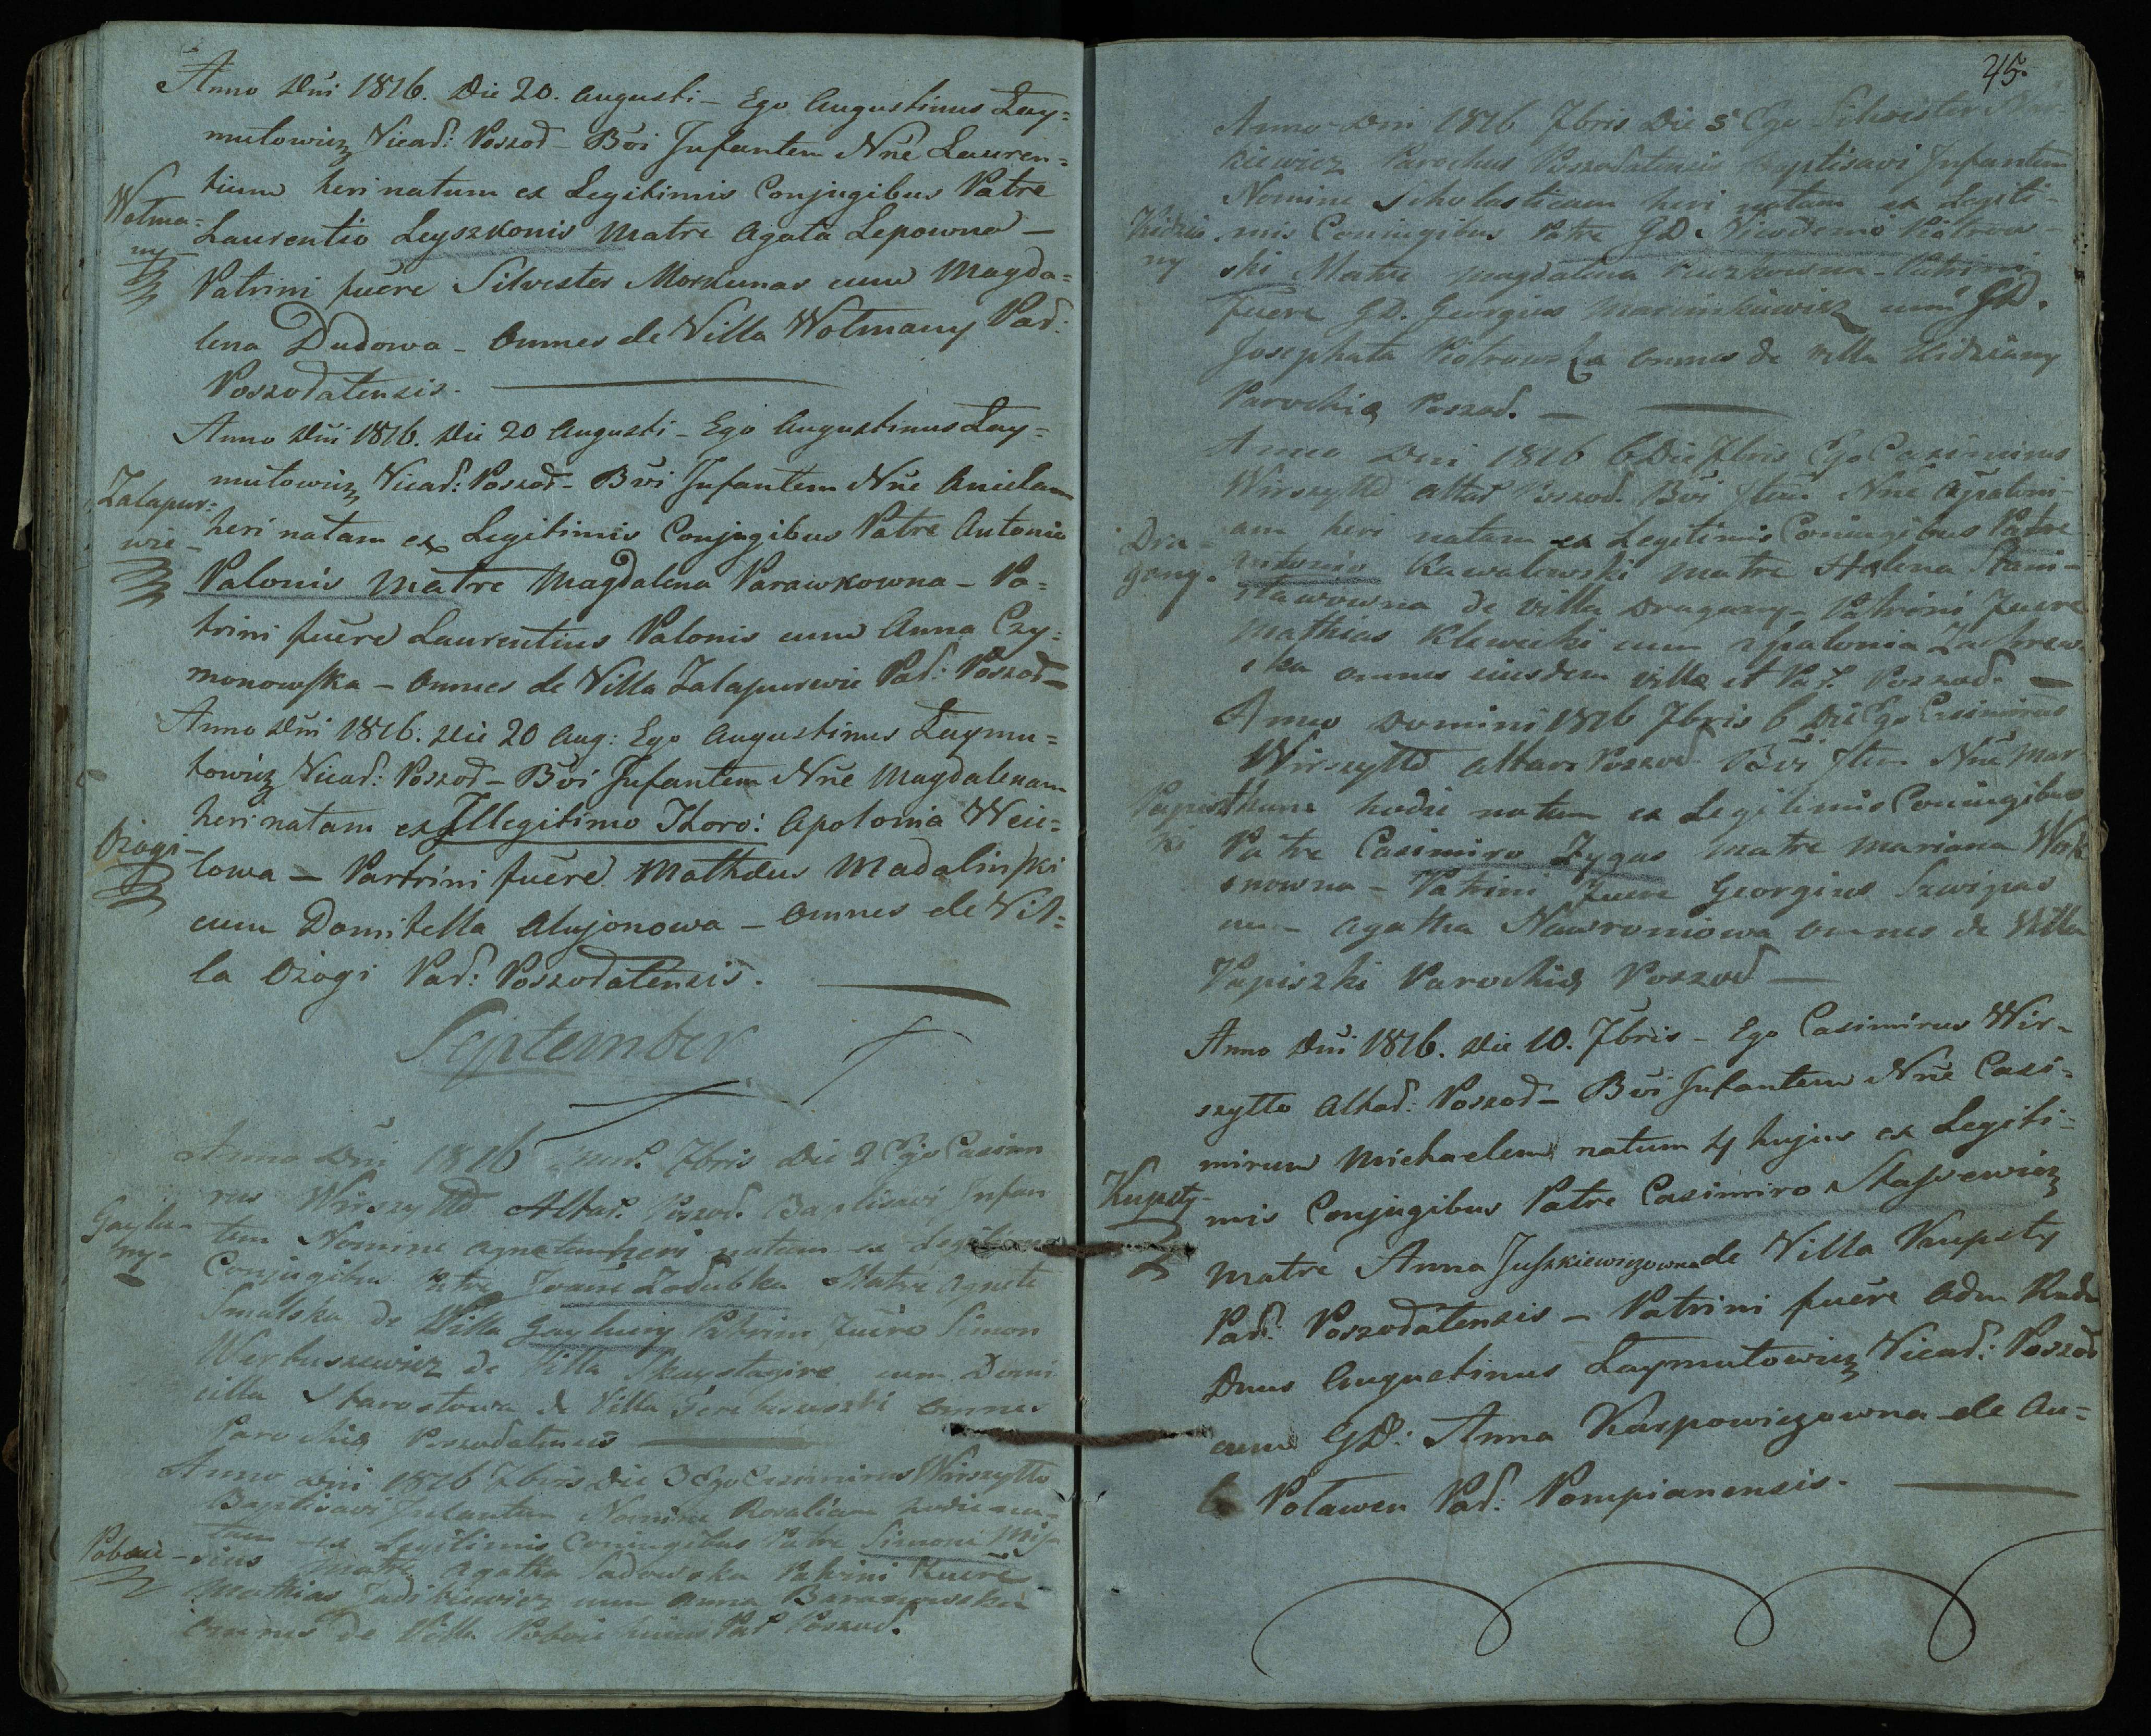 Anno Dñi 1816. Die 20. Augusti – Ego Augustinus Lay=
mutowicz Vicað: Poszoð – Bũi Infantem Nñe Lauren=
tium heri natum ex Legitimis Conjugibus Patre
Wolma=
ny
Laurentio Leyszkonis Matre Agata Lepowna –
Patrini fuêre Silvester Morkunas cum Magda=
lena Dudowa – Omnes de Villa Wolmany Pað:
Poszodatensis.
Anno Dñi 1816. Die 20 Augusti – Ego Augustinus Lay=
mutowicz Vicað: Poszoð – Bũi Infantem Nñe Anielam
Zalapur=
wie
heri natam ex Legitimis Conjugibus Patre Antonio
Palonis Matre Magdalena Parawkowna – Pa=
trini fuêre Laurentius Palonis cum Anna Czy=
monowska – Omnes de Villa Zalapurwie Pað: Poszoð –
Anno Dñi 1816. Die 20 Aug: Ego Augustinus Laymu=
towicz Vicað: Poszoð – Bũi Infantem Nñe Magdalenam
heri natam ex Illegitimo Thoro: Apolonia Weie=
Ożogi
lowa – Partrini fuêre Mathæus Madalinski
cum Domitella Alujonowa – Omnes de Vil=
la Ożogi Pað: Poszodatensis.
September
Anno Dñi 1816 7bris Die 2 Ego Casimi
rus Wirszytło Altað. Poszoð. Baptisavi Infan
Gaylu=
ny
tem Nomine Agnetam heri natam ex Legitimis
Conjugibus Patre Joane Zadubka Matre Agnete
Smulska de Villa Gayluny Patrini fuêre Simon
Werbuszewicz de Villa Skaystagire cum Domi
cilla Starostowa de Villa omnes
Parochiæ Poszodatensis
Anno Dni 1816 7bris Die 3 Ego Casimirus Wirszytło
Baptisavi Infantem Nomine Rozaliam hodie na=
tam ex Legitimis Coniugibus Patre Simone Mi
Poboie
Matre Agatha Sadowska Patrini fuêre
Mathias cum Anna Baranowska
omnes de Villa Poboie Pað Poszoð.
45.
Anno Dni 1816 7bris Die 5 Ego Silvester Nar
kiewicz Parochus Poszodatensis Baptisavi Infantem
Nomine Scholasticam heri natam ex Legiti-
Kidziu
ny
mis Coniugibus Patre GD. Nicodemo Piotrow-
ski Matre Magdalena – Patrini
fuere GD. Georgius Marcinkiewicz cum GD.
Josephata Piotrowska omnes de villa Kidziuny
Parochiæ Poszoð.
Anno Dni 1816 6 Die 7bris Ego Casimirus
Wirszytło Altað Poszoð. Bũi Nñe Appoloni-
Dra=
gany.
am heri natam ex Legitimis Coniugibus Patre
Antonio Kawalewski Matre Helena Stani-
sławowna de villa Dragany – Patrini fuere
Mathias Klewecki cum Appolonia Zachrew
ska omnes eiusdem villæ et Pað. Poszoð.
Anno Domini 1816 7bris 6 Die Ego Casimirus
Wirszytło Altar Poszoð Bũi Nñe Mar
Papisz
ki
tham hodie natam ex Legitimis Coniugibus
Patre Casimiro Zygas Matre Mariana
nowna – Patrini fuere Georgius Szwigas
cum Agatha Nawroniowa omnes de Villa
Papiszki Parochiæ Poszoð
Anno Dñi 1816. Die 10. 7bris – Ego Casimirus Wir=
szytło Altað: Poszoð – Bũi Infantem Nñe Casi=
mirum Michaelem natum 4 hujus ex Legiti=
Kupsty
mis Conjugibus Patre Casimiro Staszewicz
Matre Anna Juszkiewiczowna de Villa Kupsty
Pað: Poszodatensis – Patrini fuêre Adm Rndu
Dnus Augustinus Laymutowicz Vicað: Poszoð
cum GD: Anna Karpowiczowna de Au=
la Poławen Pað: Pompianensis.